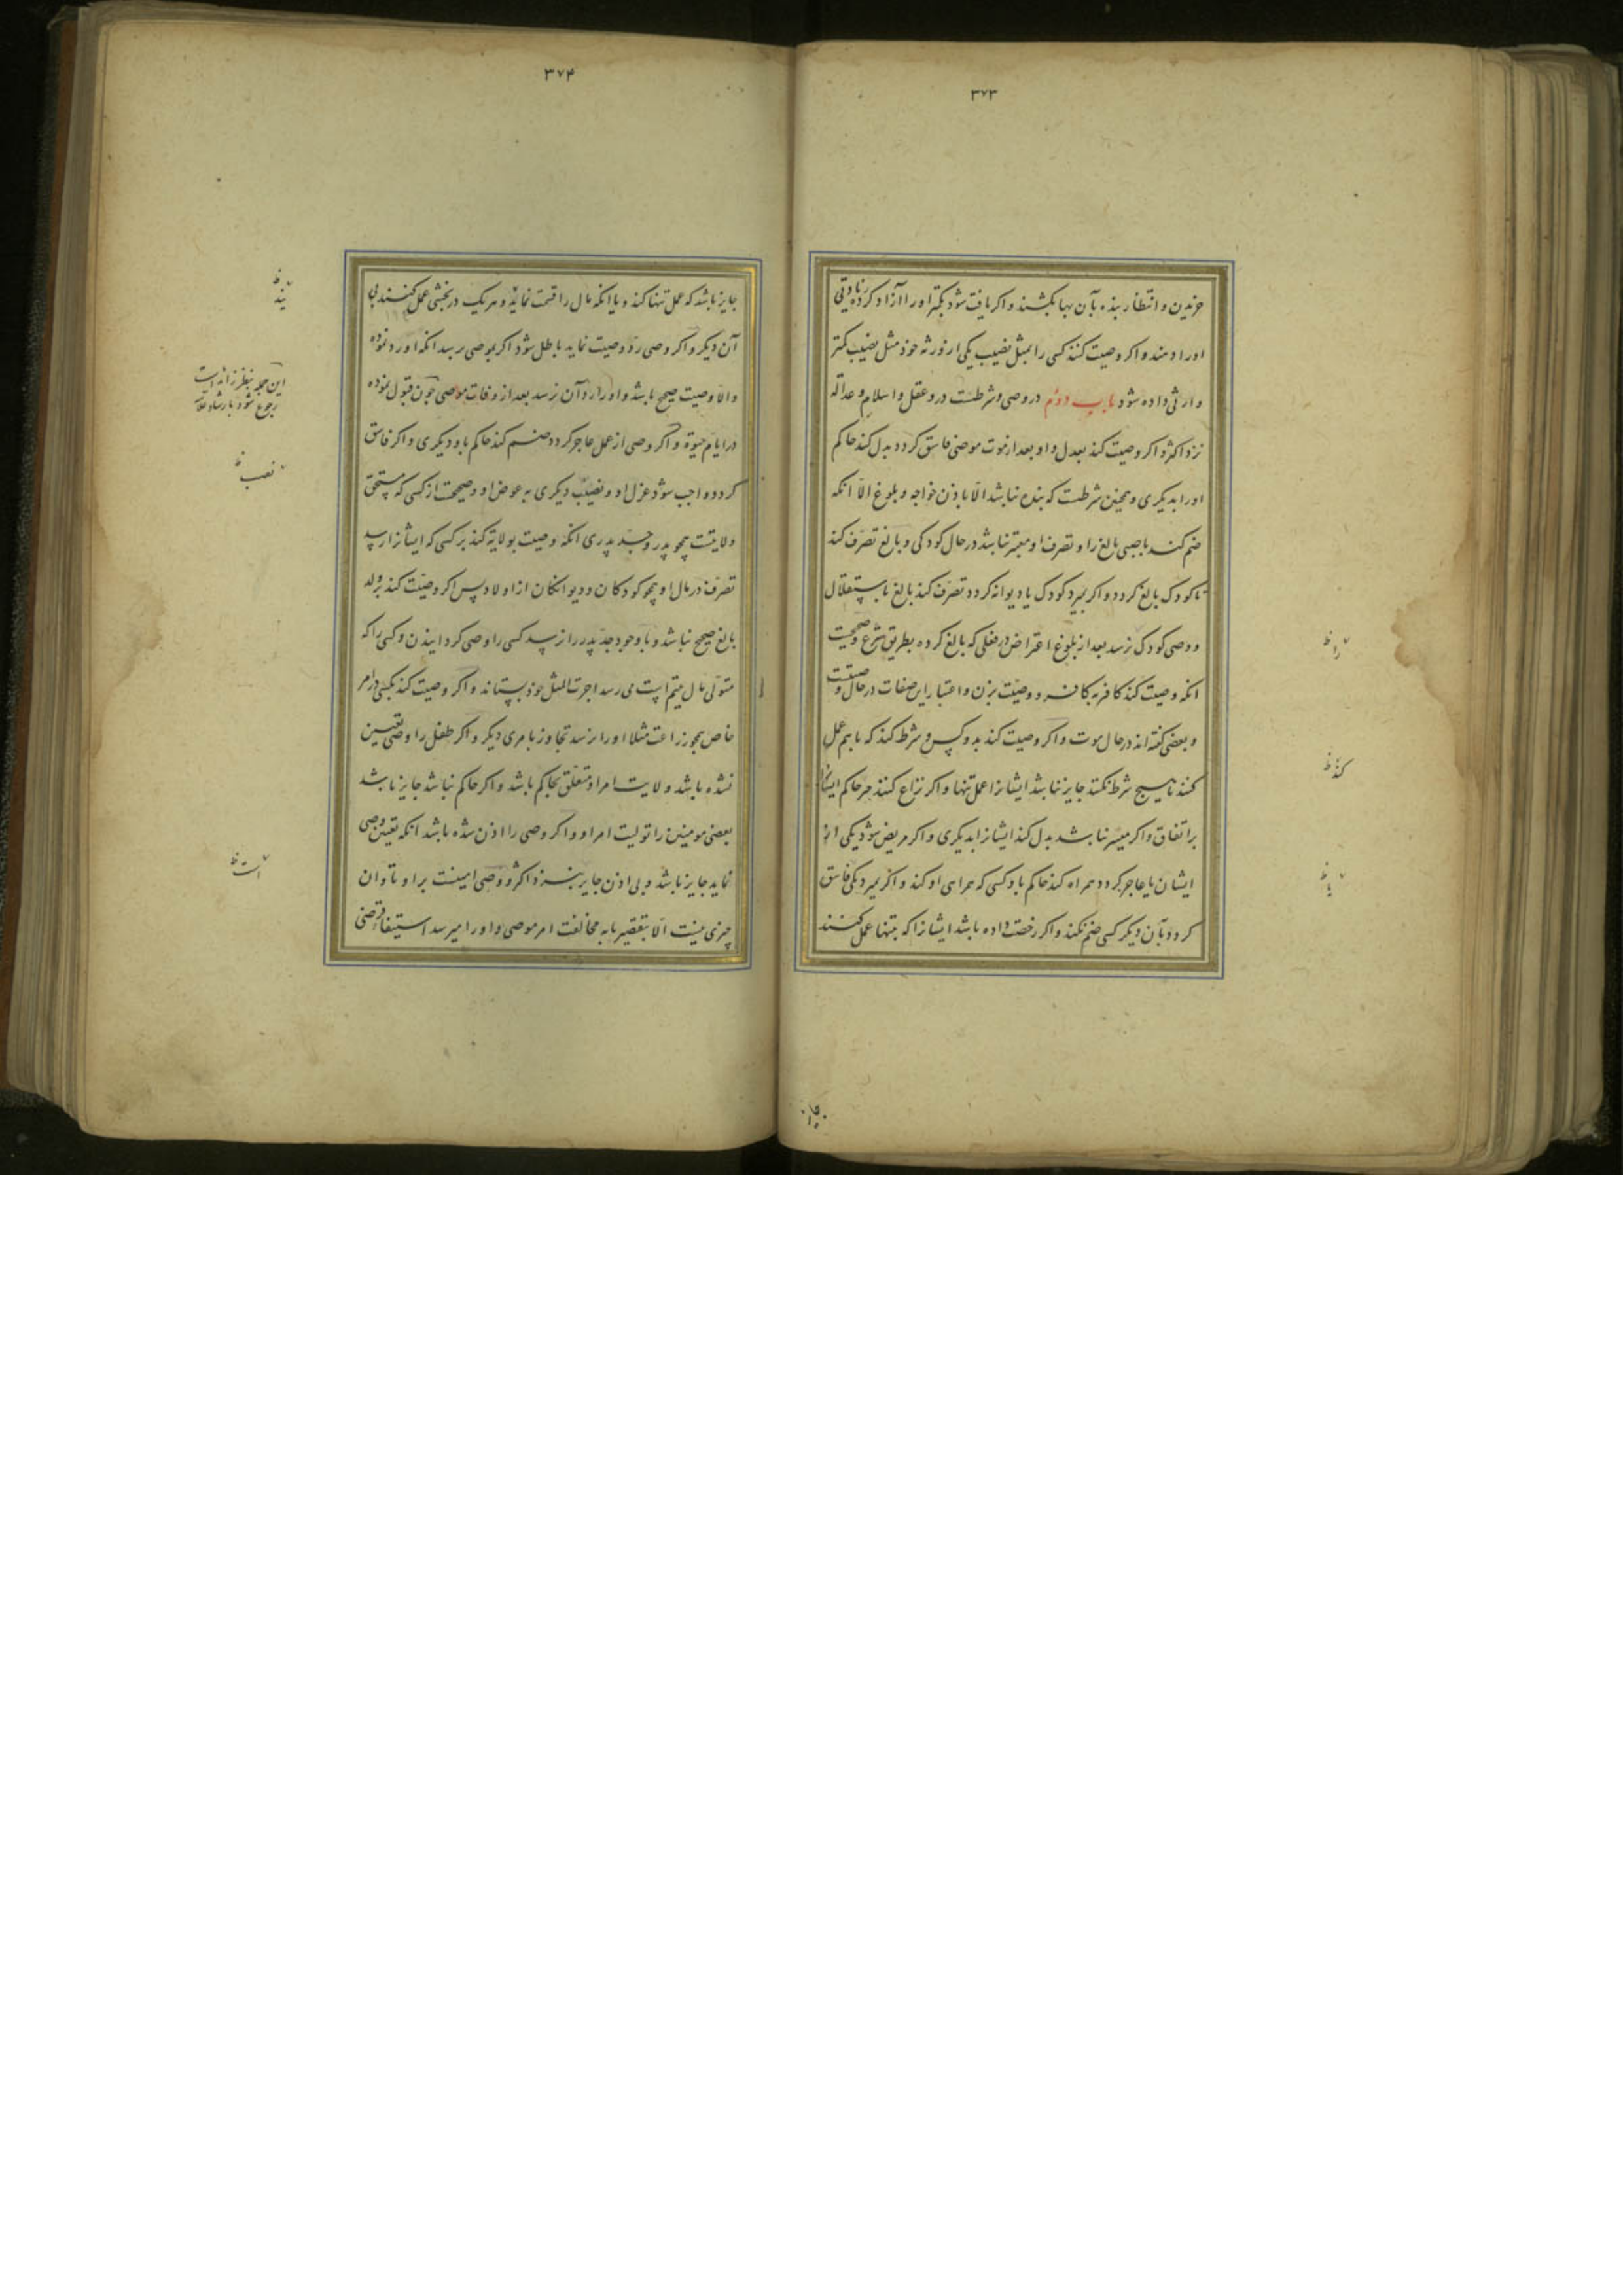 ۳۷۳
خریدن و انتظار بنده بآن بها بکشند و اگر یافت شود بکمتر او را آزاد کرده زیادتی
او را دهند و اگر وصیت کند کسی را بمثل نصیب یکی از ورثه خود مثل نصیب کمتر
وارثی داده شود باب دوم در وصی و شرطست در و عقل و اسلام و عداله
نزد اکثر و اگر وصیت کند بعدل و او بعد از موت موصی فاسق گردد بدل کند حاکم
او را بدیگری و همچنین شرطست که بنده نباشد الّا باذن خواجه و بلوغ الّا انکه
ضم کند با صبی بالغ را و تصرف او معتبر نباشد در حال کودکی و بالغ تصرف کند
تا کودک بالغ گردد و اگر بمیرد کودک یا دیوانه گردد تصرف کند بالغ باستقلال
و وصی کودک نرسد بعد از بلوغ اعتراض در فعلی که بالغ کرده بطریق شرع و صحیحست
انکه وصیت کند کافر بکافر و وصیت بزن و اعتبار این صفات در حال وصیتست
و بعضی گفته اند در حال موت و اگر وصیت کند بدو کس و شرط کند که با هم عمل
کنند یا هیچ شرط نکند جایز نباشد ایشانرا عمل تنها و اگر نزاع کنند جبر حاکم ایشانرا
بر اتفاق و اگر میسر نباشد بدل کند ایشانرا بدیگری و اگر مریض شود یکی از
ایشان یا عاجز گردد همراه کند حاکم باو کسی که همراهی او کند و اگر بمیرد یکی فاسق
گردد بآن دیگر کسی ضم نکند و اگر رخصت داده باشد ایشانرا که بتنها عمل کنند
را ظ
کند ظ
یا ظ
۳۷۴
جایز باشد که عمل تنها کند و یا انکه مال را قسمت نماید و هر یک در بخشی عمل کنند بی
آن دیگر و اگر وصی رد وصیت نماید باطل شود اگر بموصی برسد انکه او رد نموده
والا وصیت صحیح باشد و او را رد آن نرسد بعد از وفات موصی چون قبول نموده
در ایام حیوة و اگر وصی از عمل عاجز گردد ضم کند حاکم باو دیگری و اگر فاسق
گردد واجب شود عزل او و نصیب دیگری به عوض او و صحیحست از کسی که مستحق
ولایتست همچو پدر و جد پدری انکه وصیت بولایة کند بر کسی که ایشانرا رسد
تصرف در مال او همچو کودکان و دیوانگان از اولاد پس اگر وصیت کند بر ولد
بالغ صحیح نباشد و با وجود جد پدر را نرسد کسی را وصی گردانیدن و کسی را که
متولی مال یتیم است می رسد اجرت المثل خود بستاند و اگر وصیت کند بکسی در امر
خاص همچو زراعت مثلا او را نرسد تجاوز بامری دیگر و اگر طفل را وصی تعیین
نشده باشد ولایت امر او متعلق بحاکم باشد و اگر حاکم نباشد جایز باشد
بعضی مومنین را تولیت امر او و اگر وصی را اذن شده باشد انکه تعیین وصی
نماید جایز باشد و بی اذن جایز نیست نزد اکثر و وصی امینست بر او تاوان
چیزی نیست الّا بتقصیر یا به مخالفت امر موصی و او را میرسد استیفاء قرضی
یند ظ
این جمله بنظر زائد است
رجوع شود بارشاد علامه
نصب ظ
است ظ